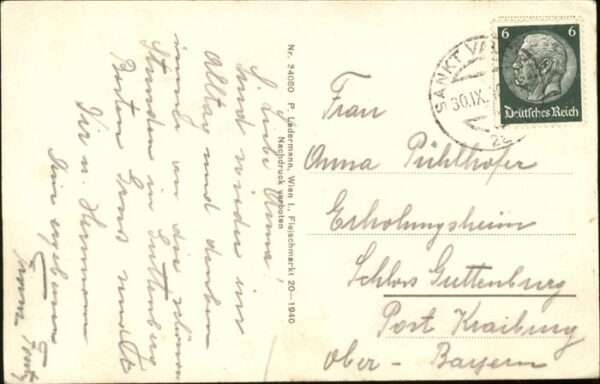 L. Liebe Anna!
Sind wieder im
Alltag und denken
immer an die schönen
Stunden in Guttenburg
Besten Gruss und
Dir u. Hermann
Nr. 24080 P. Ledermann, Wien I., Fleischmarkt 20—1940
Nachdruck verboten
SANKT VA
30.IX.
6 6
Deutsches Reich
Frau
Anna Pühlhofer
Erholungsheim
Schloss Guttenburg
Post Kraiburg
Ober - Bayern